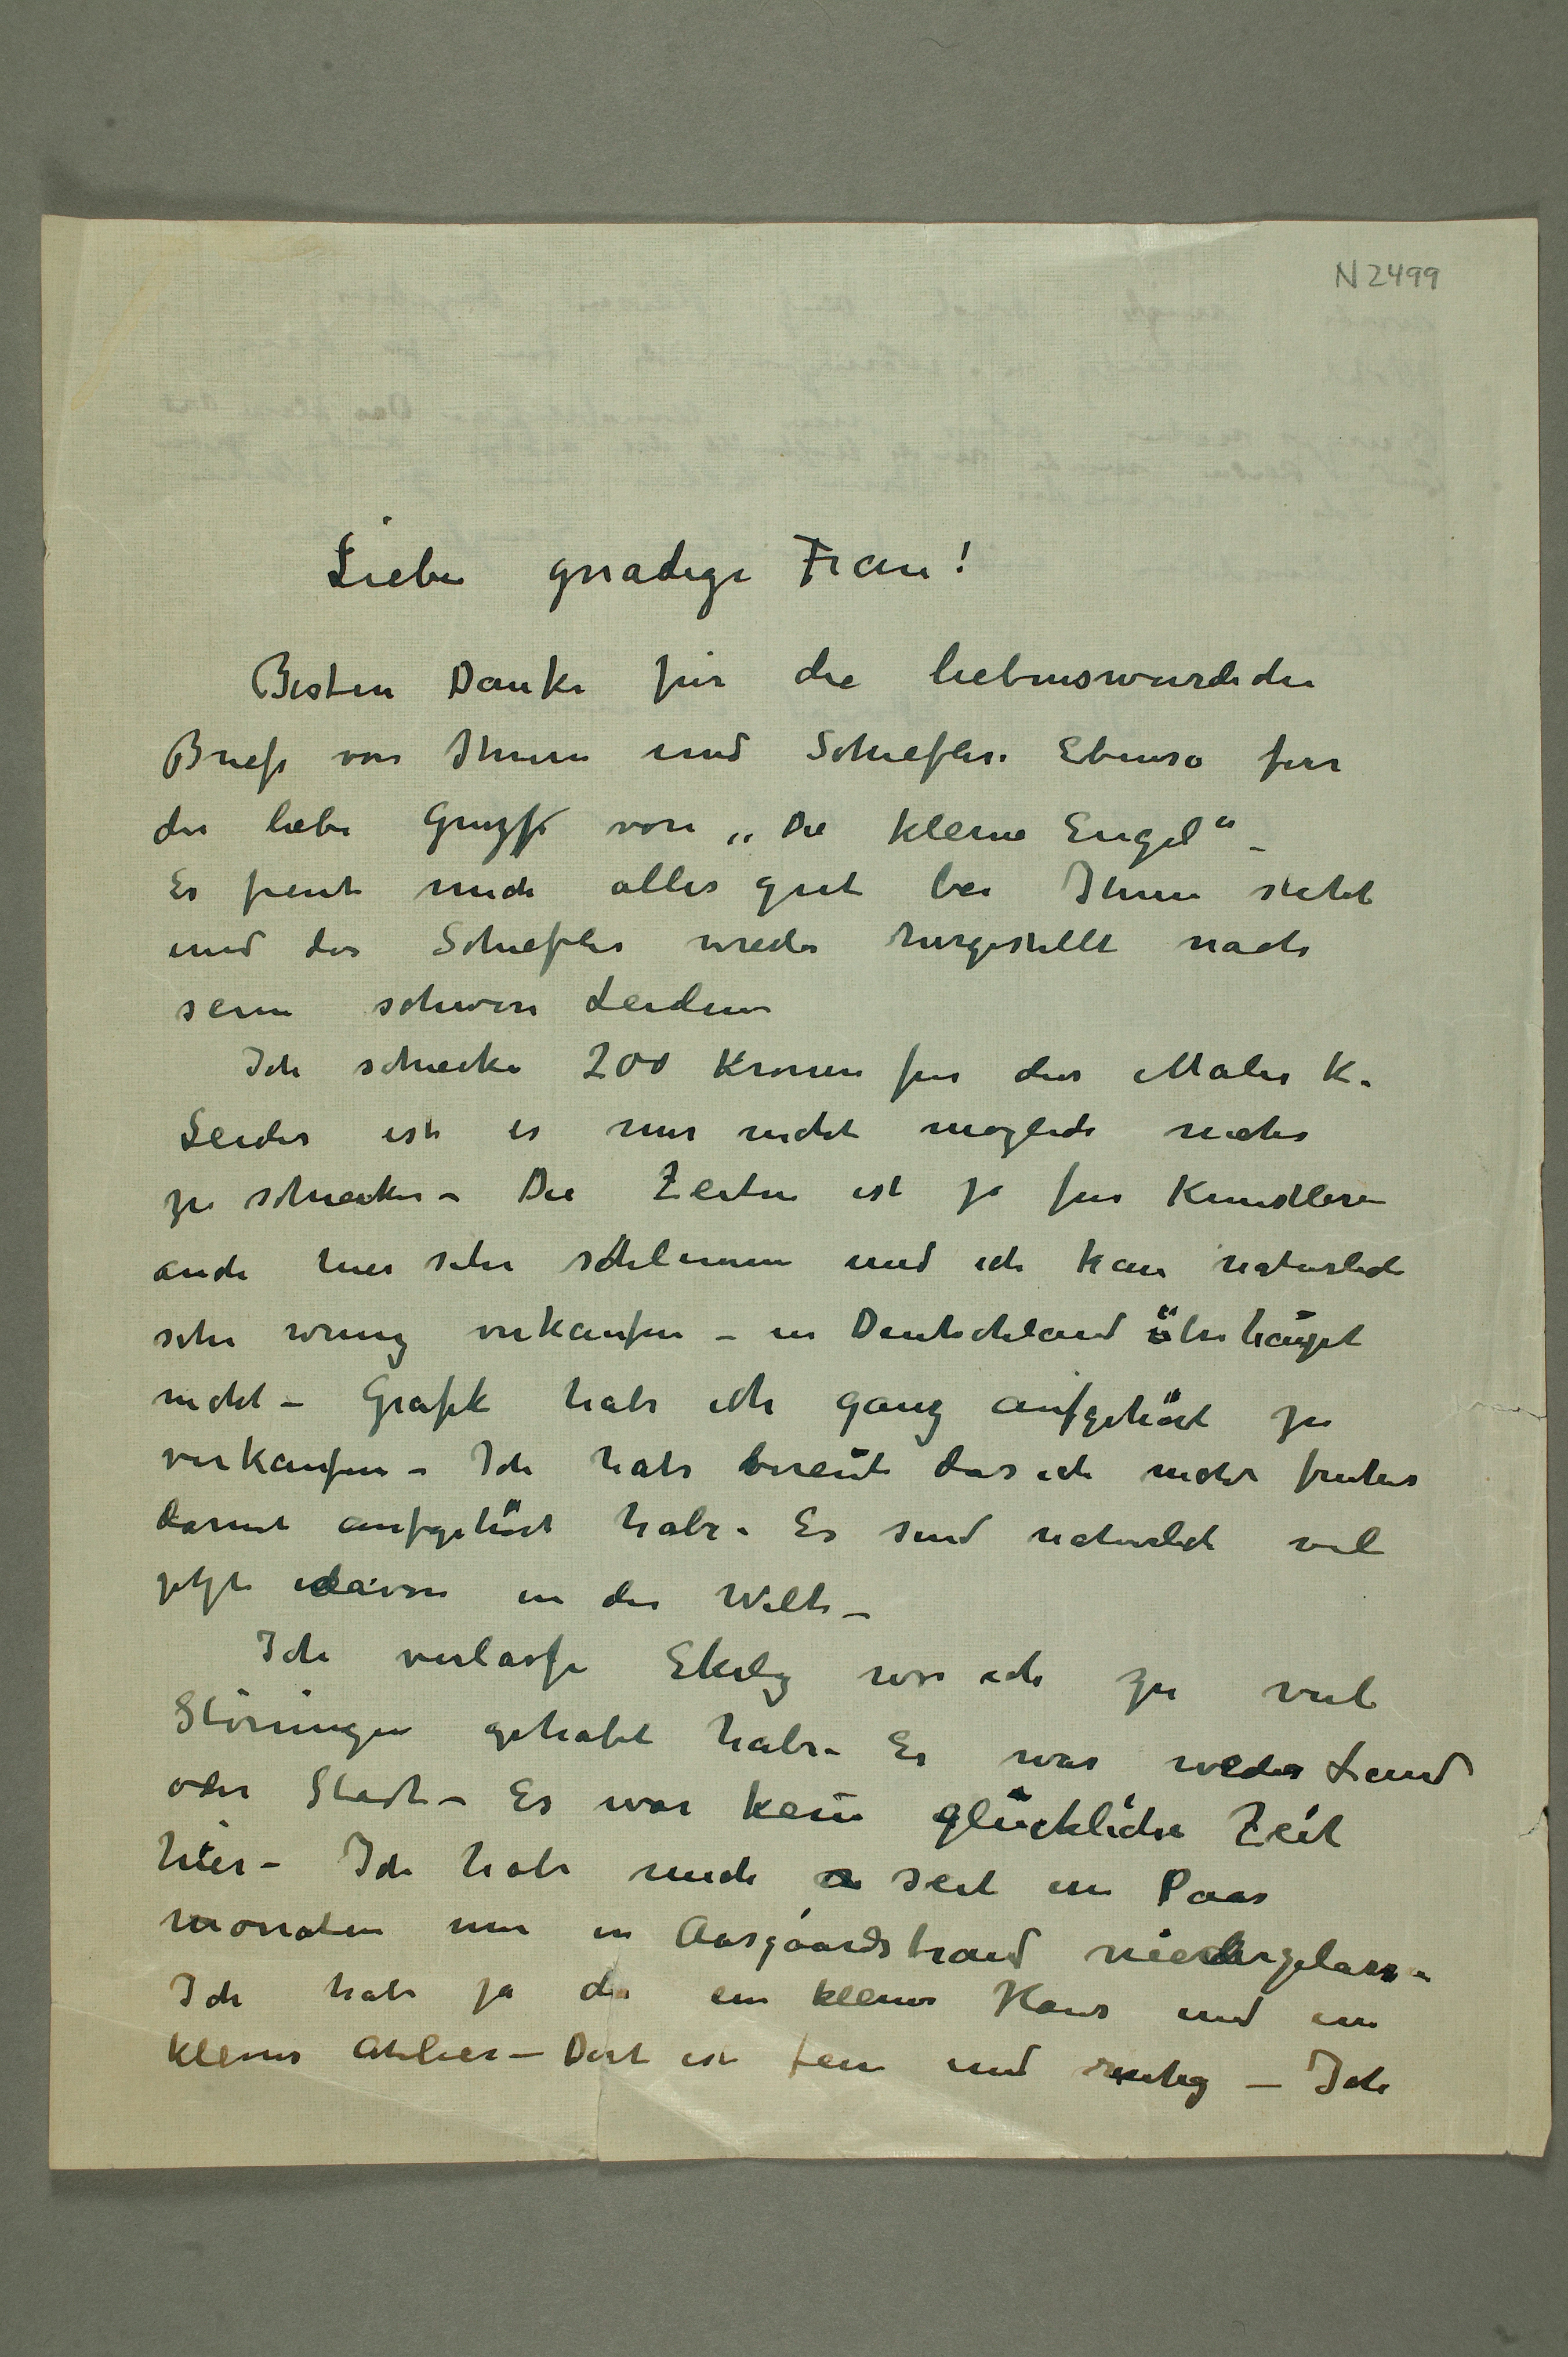 N 2499
Liebe gnadige Frau!
Besten Danke für die liebenswurdiche
Briefe von Ihnen und Schiefler. Ebenso fur
die liebe Gruzse von „Die kleine Engel“ –
Es freut mich alles gut bei Ihnen steht
und das Schiefler wieder hergestellt nach
seine schwere Leiden
Ich schicke 200 Kronen fur den Maler K.
Leider ist es mir nicht möglich mehr
zu schicken – Die Zeiten ist ja fur Kunstlere
auch hier sehr schlimm und ich kan naturlich
sehr wenig verkaufen – in Deutschland überhaupt
nicht – Grafik habe ich ganz aufgehört zu
verkaufen – Ich habe bereut das ich nicht fruher
damit aufgehört habe – Es sind naturlich viel
jetzt davon in der Welt –
Ich verlasse Ekely wo ich zu viel
Störungen gehabt habe – Es war weder Land
oder Stadt – Es war kein glückliche Zeit
hier – Ich habe mich seit ein Paar
monaten nun in Aasgaardstrand niedergelass –
Ich habe ja da ein kleines Haus und ein
kleines Atelier – Dort ist fein und ruhig – Ich